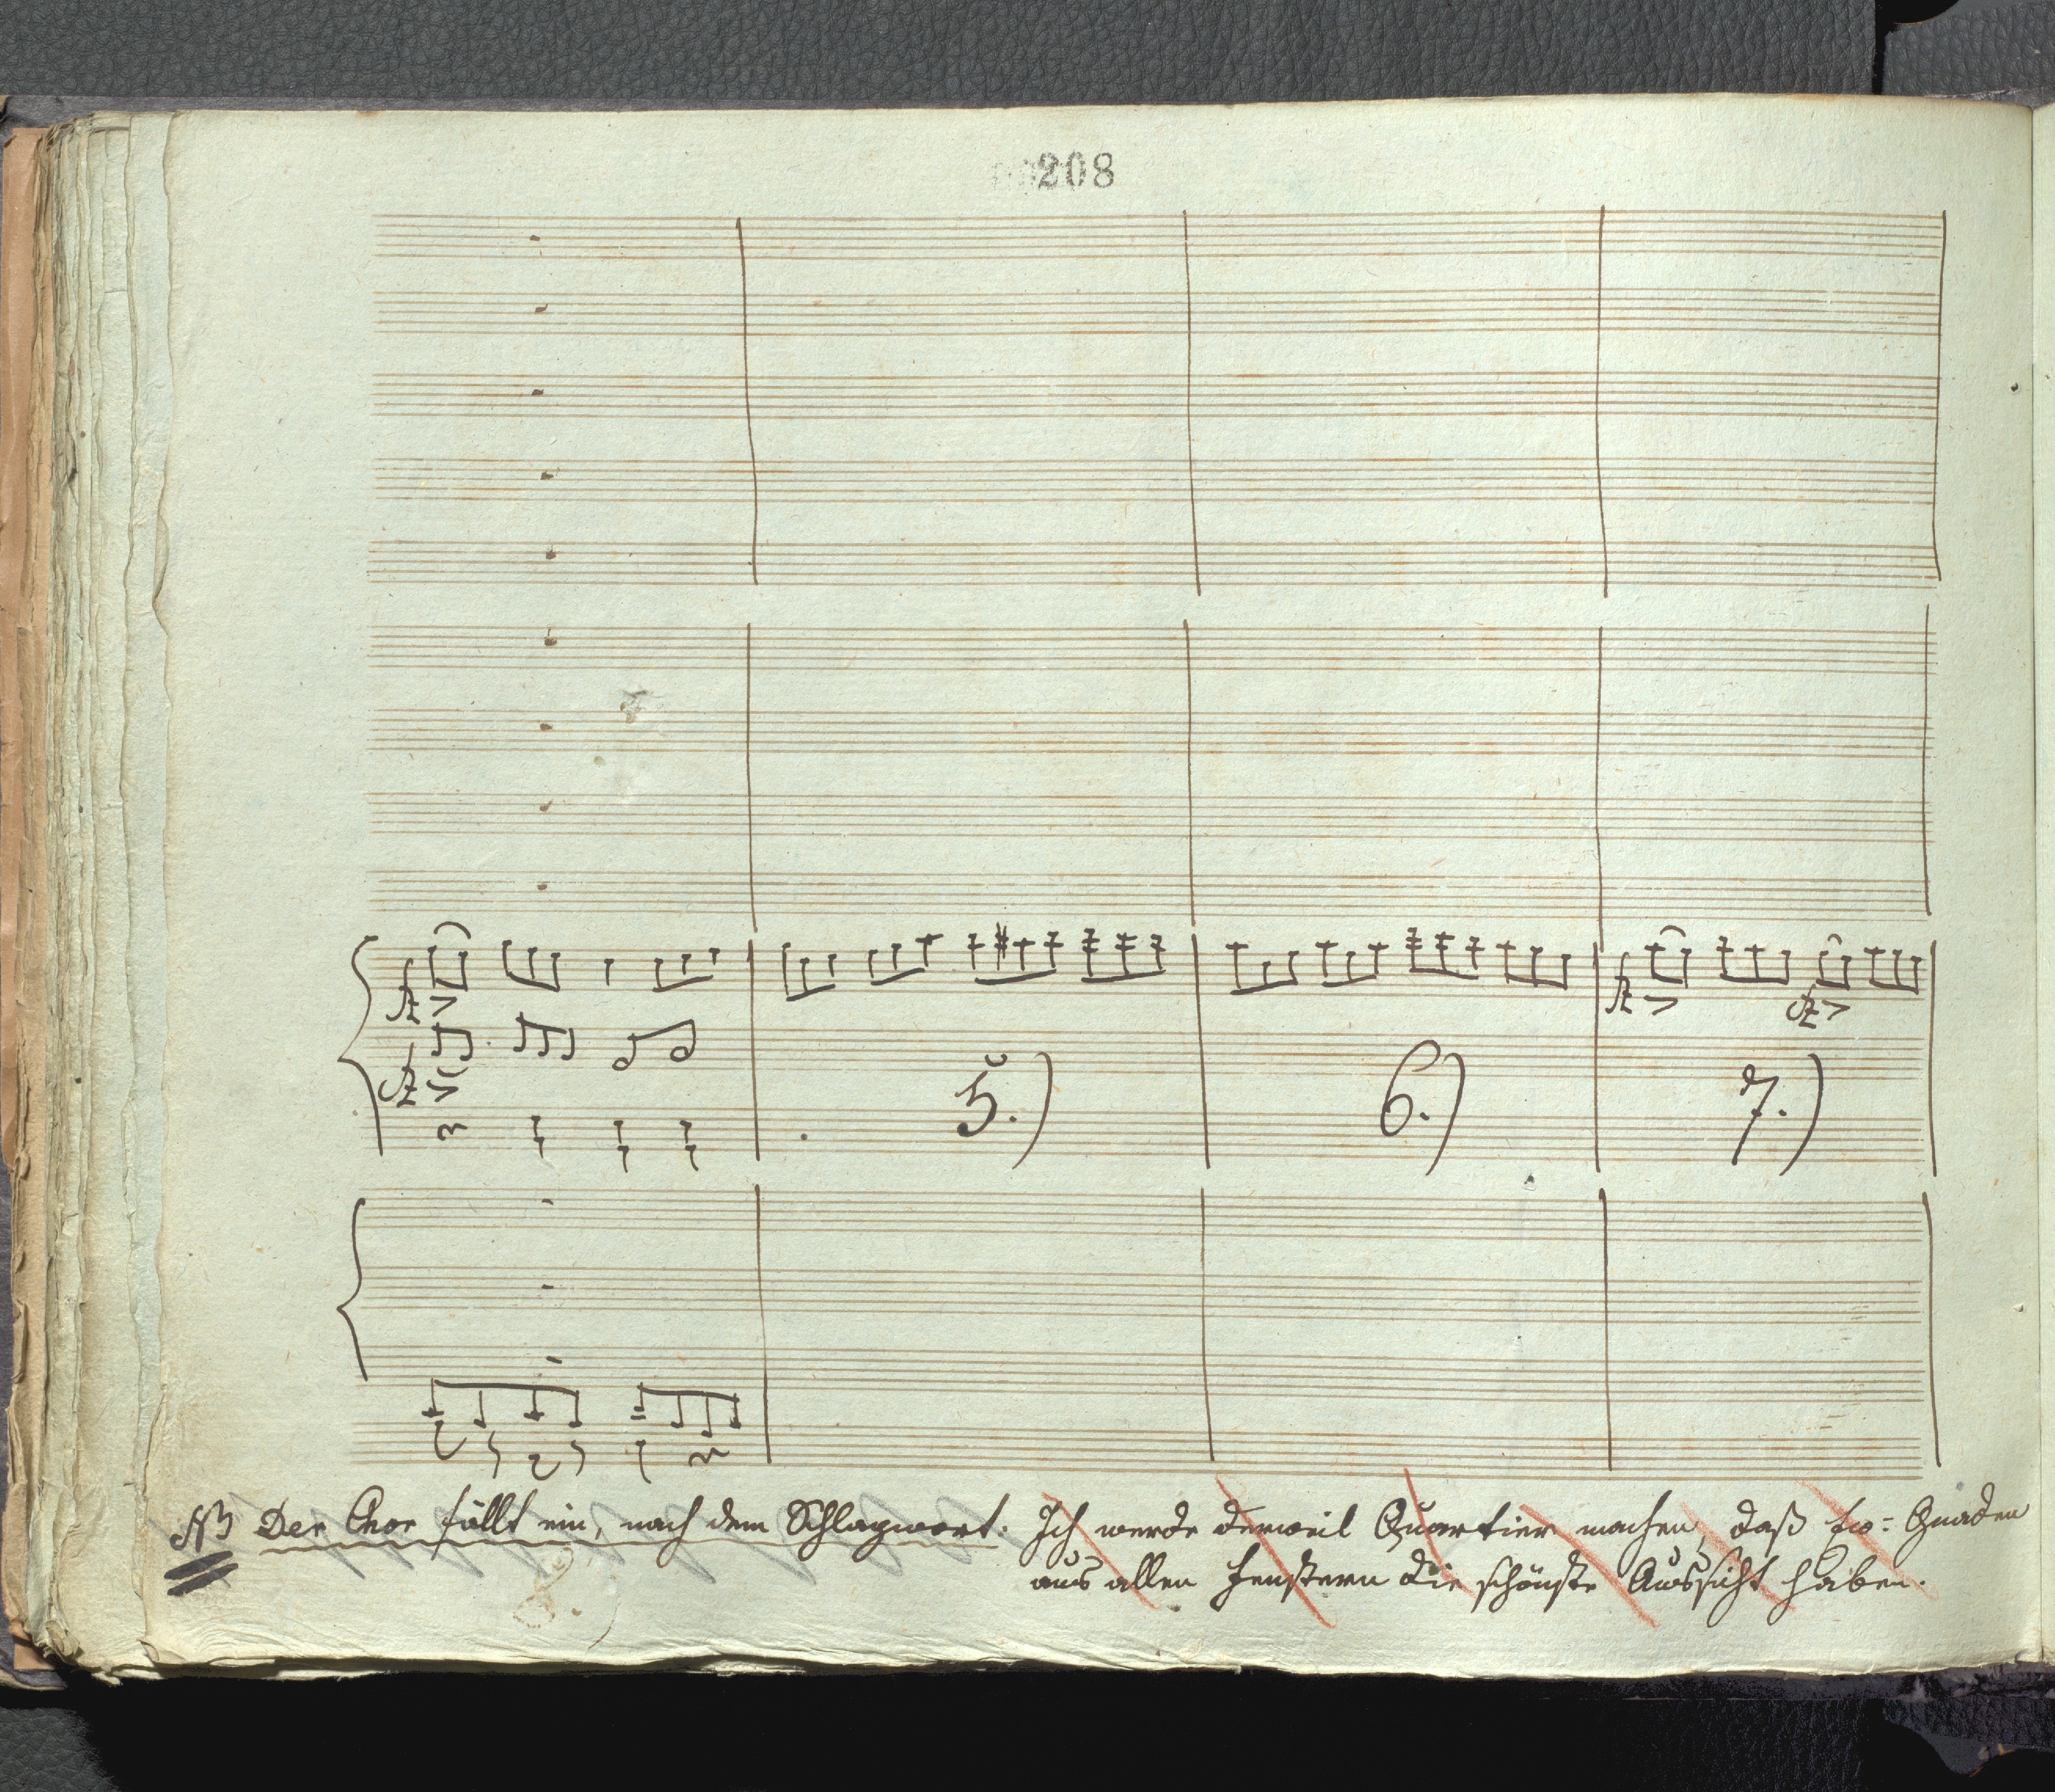 208
fz fz fz
fz
5.) 6.) 7.)
NB Der Chor fällt ein, nach dem Schlagwort: Ich werde derweil Quartier machen, daß Ew: Gnaden
aus allen Fenstern die schönste Aussicht haben.